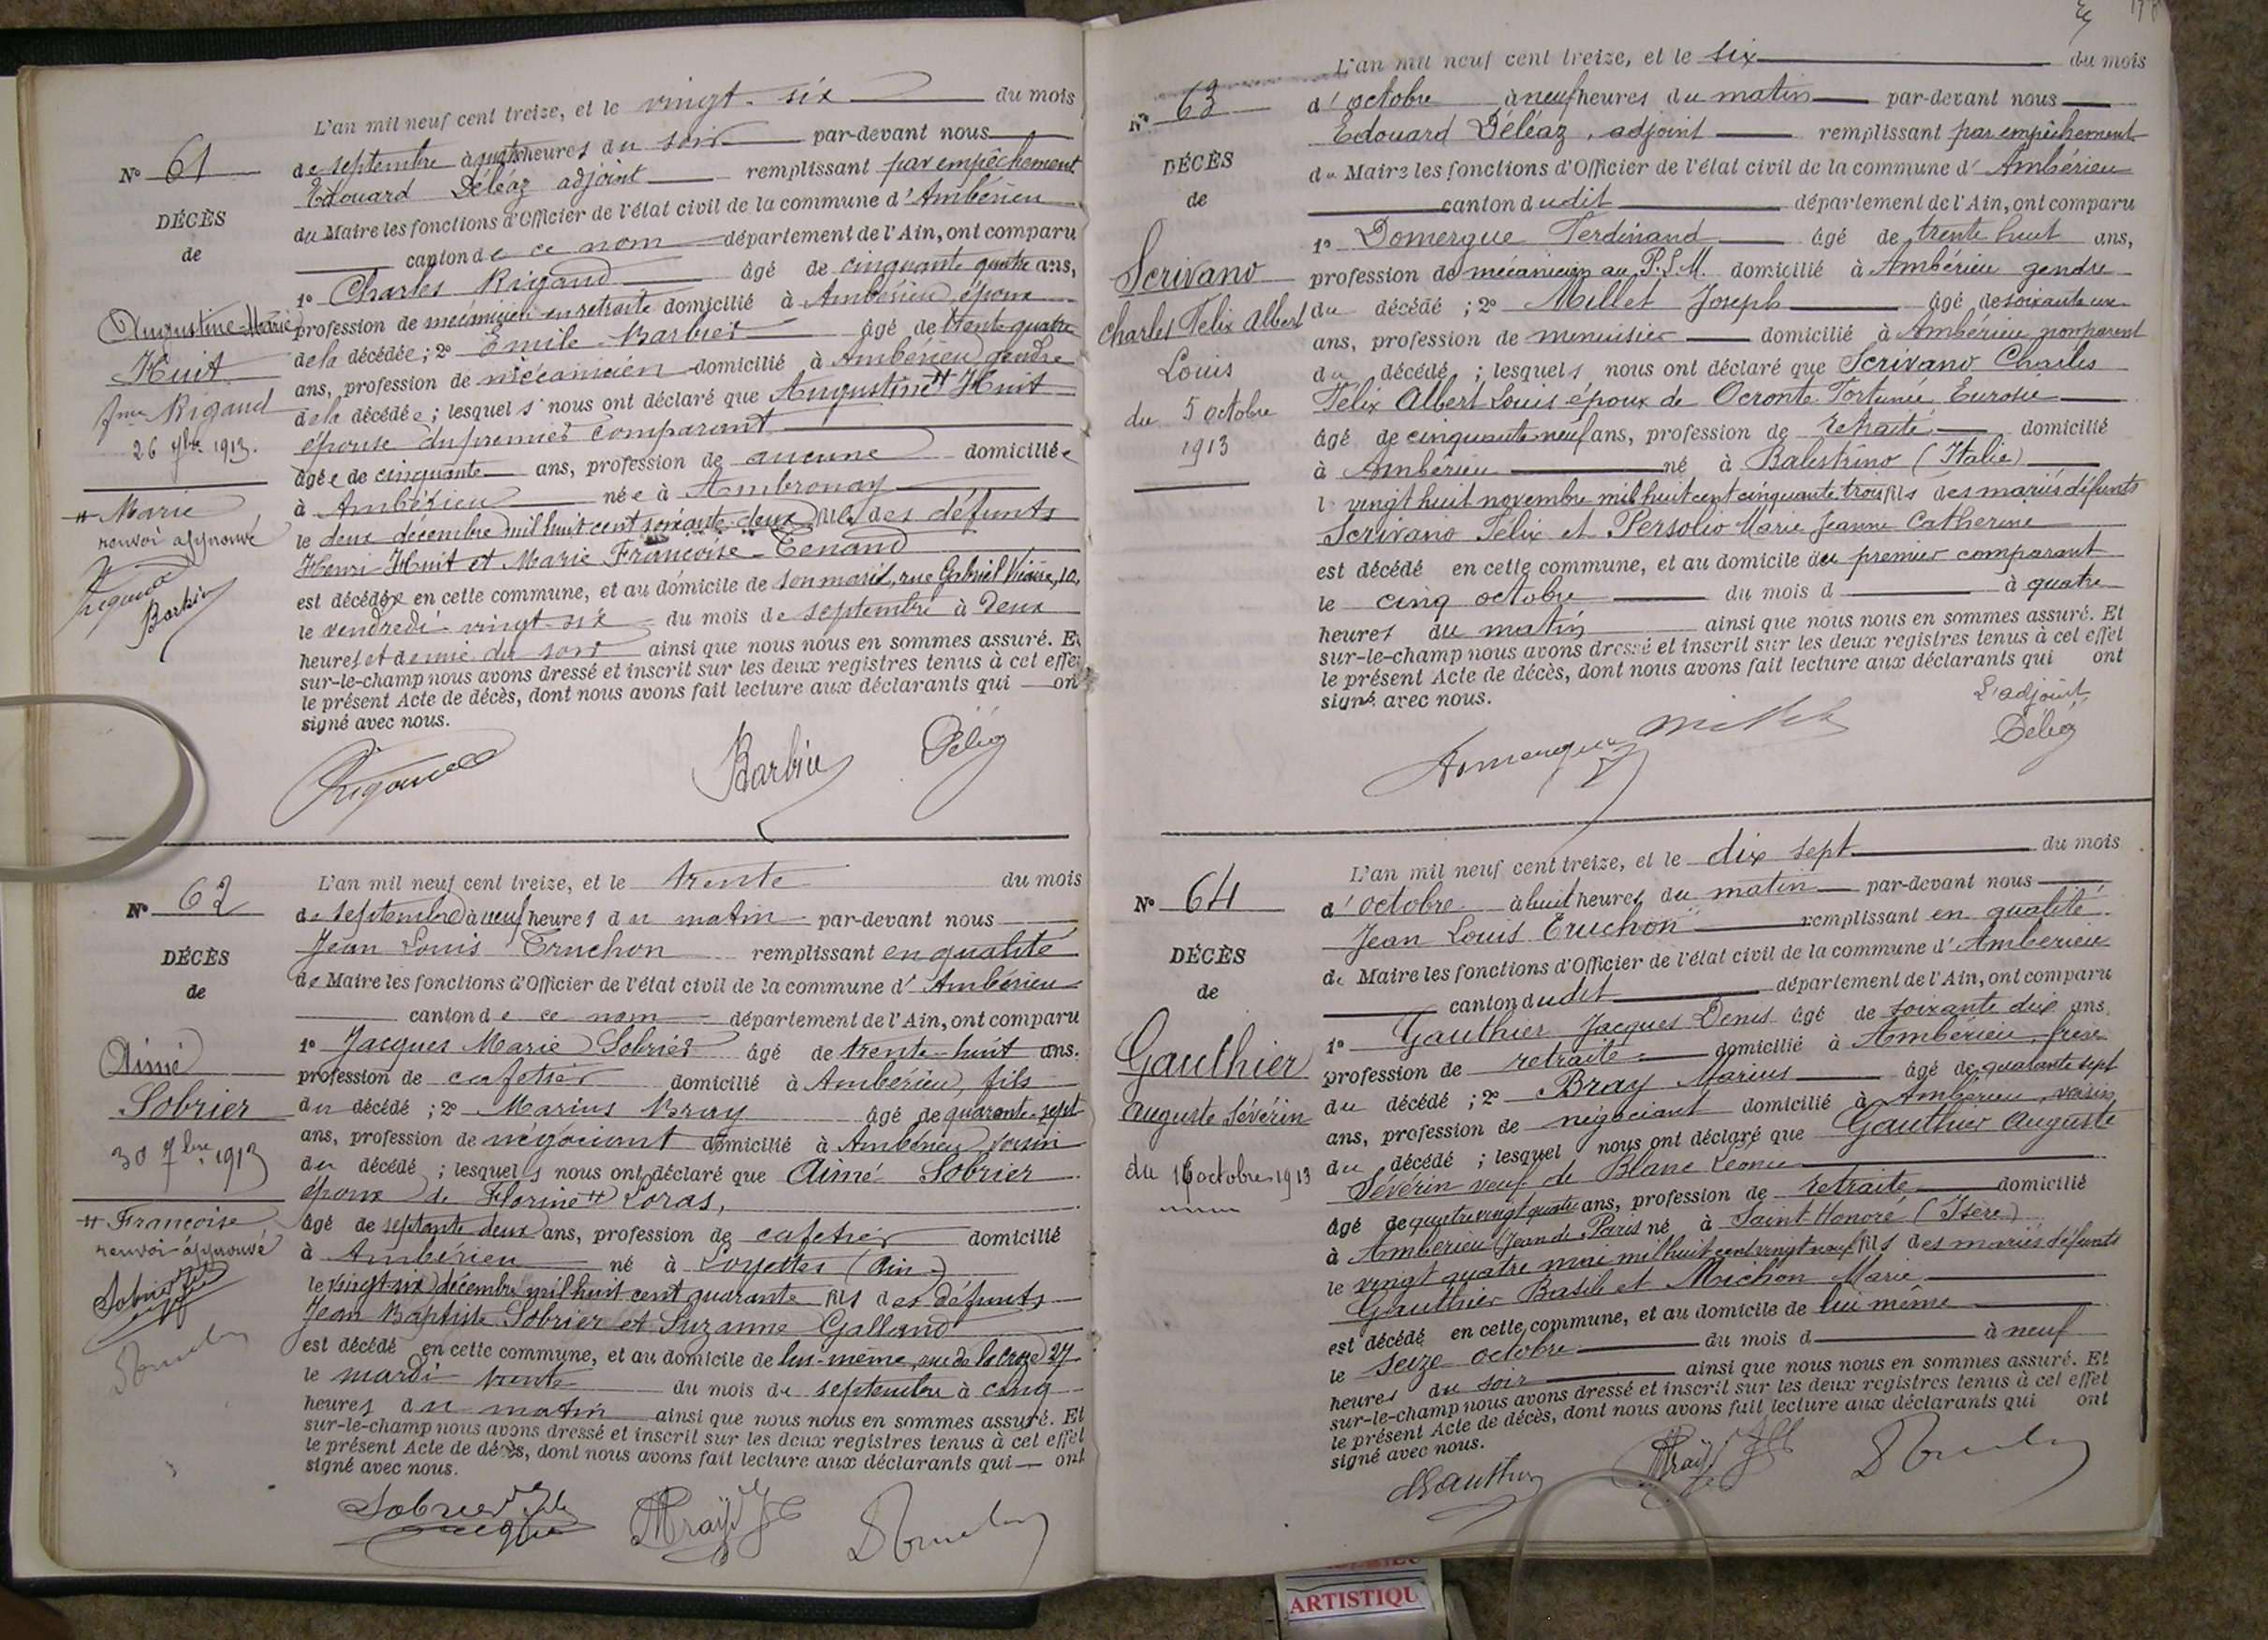 L'an mil neuf cent treize, et le vingt-six du mois
N° 61
de septembre à quatre heures du soir par-devant nous
Edouard Déléaz adjoint remplissant par empêchement
du Maire les fonctions d'Officier de l'état civil de la commune d'Ambérieu
canton de ce nom département de l'Ain, ont comparu
1° Charles Rigaud âgé de cinquante quatre ans,
profession de mécanicien en retraite domicilié à Ambérieu, époux
de la décédée ; 2° Emile Barbier âgé de trente quatre
ans, profession de mécanicien domicilié à Ambérieu, gendre
de la décédée ; lesquels nous ont déclaré que Augustine # Huit
épouse du premier comparant
âgée de cinquante ans, profession de aucune domiciliée
à Ambérieu née à Ambronay
le deux décembre mil huit cent soixante-deux fille des défunts
Henri Huit et Marie Françoise Tenand
est décédée en cette commune, et au domicile de son mari, rue Gabriel Vicaire, 10,
le vendredi vingt-six du mois de septembre à deux
heures et demie du soir ainsi que nous nous en sommes assuré. Et
sur-le-champ nous avons dressé et inscrit sur les deux registres tenus à cet effet
le présent Acte de décès, dont nous avons fait lecture aux déclarants qui on
signé avec nous.
DÉCÈS
de
Augustine-Marie
Huit
fme Rigaud
26 7bre 1913.
# Marie
renvoi approuvé
Rigaud
Barbier
Rigaud Barbier Déléaz
L'an mil neuf cent treize, et le trente du mois
N° 62
de septembre à neuf heures du matin par-devant nous
Jean Louis Truchon remplissant en qualité
de Maire les fonctions d'Officier de l'état civil de la commune d'Ambérieu
canton de ce nom département de l'Ain, ont comparu
1° Jacques Marie Sobrier âgé de trente-huit ans.
profession de cafetier domicilié à Ambérieu, fils
du décédé ; 2° Marius Bray âgé de quarante-sept
ans, profession de négociant domicilié à Ambérieu voisin
du décédé ; lesquels nous ont déclaré que Aimé Sobrier
époux de Florine # Loras,
âgé de septante deux ans, profession de cafetier domicilié
à Ambérieu né à Loyettes (Ain)
le vingt-six décembre mil huit cent quarante fils des défunts
Jean Baptiste Sobrier et Suzanne Galland
est décédé en cette commune, et au domicile de lui-même, rue de la croze 27
le mardi trente du mois de septembre à cinq
heures du matin ainsi que nous nous en sommes assuré. Et
sur-le-champ nous avons dressé et inscrit sur les deux registres tenus à cet effet
le présent Acte de décès, dont nous avons fait lecture aux déclarants qui ont
signé avec nous.
DÉCÈS
de
Aimé
Sobrier
30 7bre 1913
# Françoise
renvoi approuvé
Sobrier
L'an mil neuf cent treize, et le six du mois
N° 63
d'octobre à neuf heures du matin par-devant nous
Edouard Déléaz, adjoint remplissant par empêchement
du Maire les fonctions d'Officier de l'état civil de la commune d'Ambérieu
canton dudit département de l'Ain, ont comparu
1° Domergue Ferdinand âgé de trente huit ans,
profession de mécanicien au P.L.M. domicilié à Ambérieu gendre
du décédé ; 2° Millet Joseph âgé de soixante un
ans, profession de menuisier domicilié à Ambérieu non parent
du décédé ; lesquels nous ont déclaré que Scrivano Charles
Félix Albert Louis époux de Ocronte Fortunée Eurosie
âgé de cinquante-neuf ans, profession de retraité domicilié
à Ambérieu né à Balestrino (Italie)
l vingt huit novembre mil huit cent cinquante trois fils des mariés défunts
Scrivano Félix et Persolio Marie Jeanne Catherine
est décédé en cette commune, et au domicile du premier comparant
le cinq octobre du mois d à quatre
heures du matin ainsi que nous nous en sommes assuré. Et
sur-le-champ nous avons dressé et inscrit sur les deux registres tenus à cet effet
le présent Acte de décès, dont nous avons fait lecture aux déclarants qui ont
signé avec nous.
DÉCÈS
de
Scrivano
Charles Felix Albert
Louis
du 5 octobre
1913
L'adjoint
Domergue Millet Déléaz
L'an mil neuf cent treize, et le dix sept du mois
N° 64
d'octobre à huit heures du matin par-devant nous
Jean Louis Truchon remplissant en qualité
de Maire les fonctions d'Officier de l'état civil de la commune d'Ambérieu
canton dudit département de l'Ain, ont comparu
1° Gauthier Jacques Denis âgé de soixante dix ans
profession de retraité domicilié à Ambérieu, frère
du décédé ; 2° Bray Marius âgé de quarante sept
ans, profession de négociant domicilié à Ambérieu, voisin
du décédé ; lesquel nous ont déclaré que Gauthier Auguste
Sévérin veuf de Blanc Léonie
âgé de quatre vingt quatre ans, profession de retraité domicilié
à Ambérieu Jean de Paris né à Saint-Honoré (Isère)
le vingt quatre mai mil huit cent vingt neuf fils des mariés défunts
Gauthier Basile et Michon Marie
est décédé en cette commune, et au domicile de lui même
le seize octobre du mois d à neuf
heures du soir ainsi que nous nous en sommes assuré. Et
sur-le-champ nous avons dressé et inscrit sur les deux registres tenus à cet effet
le présent Acte de décès, dont nous avons fait lecture aux déclarants qui ont
signé avec nous.
DÉCÈS
de
Gauthier
Auguste Sévérin
du 16 octobre 1913
Gauthier Bray
ARTISTIQU